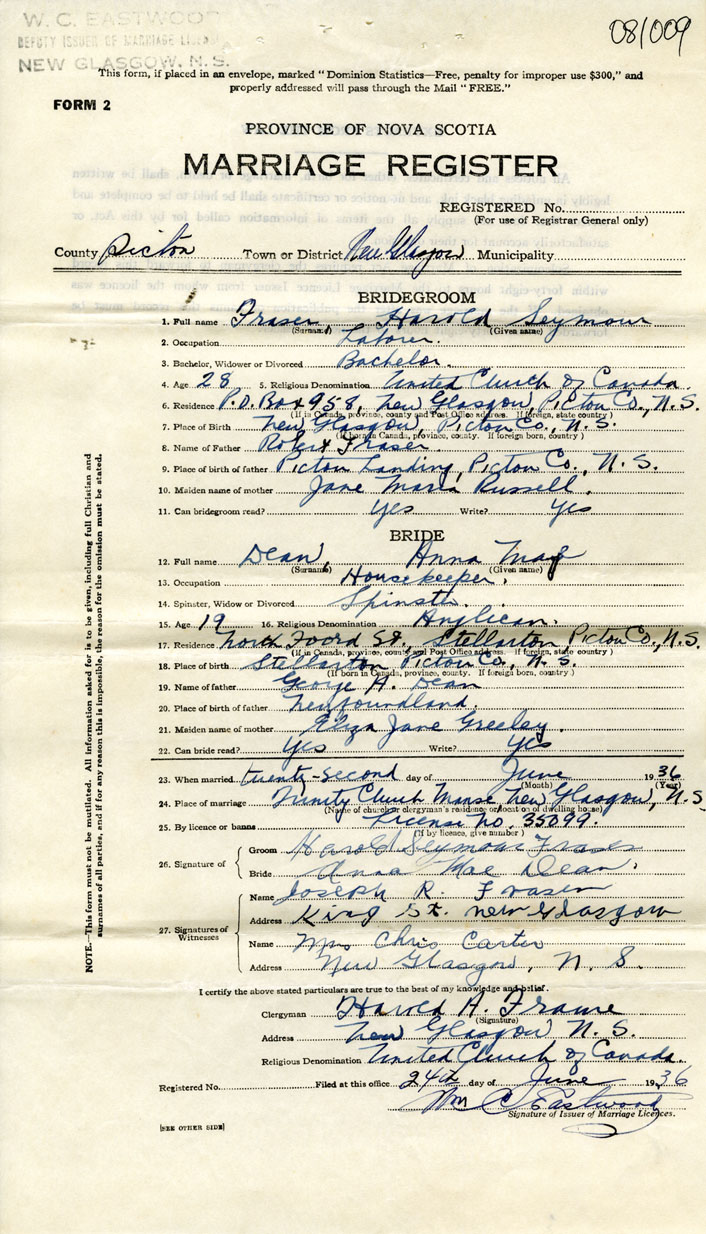 W. C. EASTWOOD
DEPUTY ISSUER OF MARRIAGE LICENSES
NEW GLASGOW, N. S.
08/009
This form, if placed in an envelope, marked "Dominion Statistics—Free, penalty for improper use $300," and
properly addressed will pass through the Mail "FREE."
FORM 2
PROVINCE OF NOVA SCOTIA
MARRIAGE REGISTER
REGISTERED No.
(For use of Registrar General only)
County Pictou Town or District New Glasgow Municipality
BRIDEGROOM
1. Full name Fraser, Harold Seymour
(Surname) (Given name)
2. Occupation Laborer.
3. Bachelor, Widower or Divorced Bachelor.
4. Age 28 5. Religious Denomination United Church of Canada.
6. Residence P.O. Box 958, New Glasgow, Pictou Co., N.S.
(If in Canada, province, county and Post Office address. If foreign, state country)
7. Place of Birth New Glasgow, Pictou Co., N.S.
(If born in Canada, province, county. If foreign born, country)
8. Name of Father Robert Fraser
9. Place of birth of father Pictou Landing, Pictou Co., N.S.
10. Maiden name of mother Jane Maria Russell.
11. Can bridegroom read? Yes Write? Yes
BRIDE
12. Full name Dean, Anna May
(Surname) (Given name)
13. Occupation Housekeeper.
14. Spinster, Widow or Divorced Spinster.
15. Age 19 16. Religious Denomination Anglican.
17. Residence North Foord St., Stellarton Pictou Co., N.S.
(If in Canada, province, county and Post Office address. If foreign, state country)
18. Place of birth Stellarton Pictou Co., N.S.
(If born in Canada, province, county. If foreign born, country)
19. Name of father George A. Dean
20. Place of birth of father Newfoundland.
21. Maiden name of mother Eliza Jane Greeley.
22. Can bride read? Yes Write? Yes
23. When married twenty-second day of June 1936
(Month) (Year)
24. Place of marriage Trinity Church Manse New Glasgow, N.S.
(Name of church or clergyman's residence or location of dwelling house)
25. By licence or banns License No. 35099.
(If by licence, give number)
26. Signature of
Groom Harold Seymour Fraser
Bride Anna Mae Dean.
27. Signatures of Witnesses
Name Joseph R. Fraser
Address King St. New Glasgow
Name Mrs Chris Carter
Address New Glasgow, N. S.
I certify the above stated particulars are true to the best of my knowledge and belief.
Clergyman Harold A. Frame
(Signature)
Address New Glasgow N.S.
Religious Denomination United Church of Canada.
Registered No. Filed at this office 24th day of June 1936
Wm C Eastwood
Signature of Issuer of Marriage Licences.
[SEE OTHER SIDE]
NOTE.—This form must not be mutilated. All information asked for is to be given, including full Christian and
surnames of all parties, and if for any reason this is impossible, the reason for the omission must be stated.